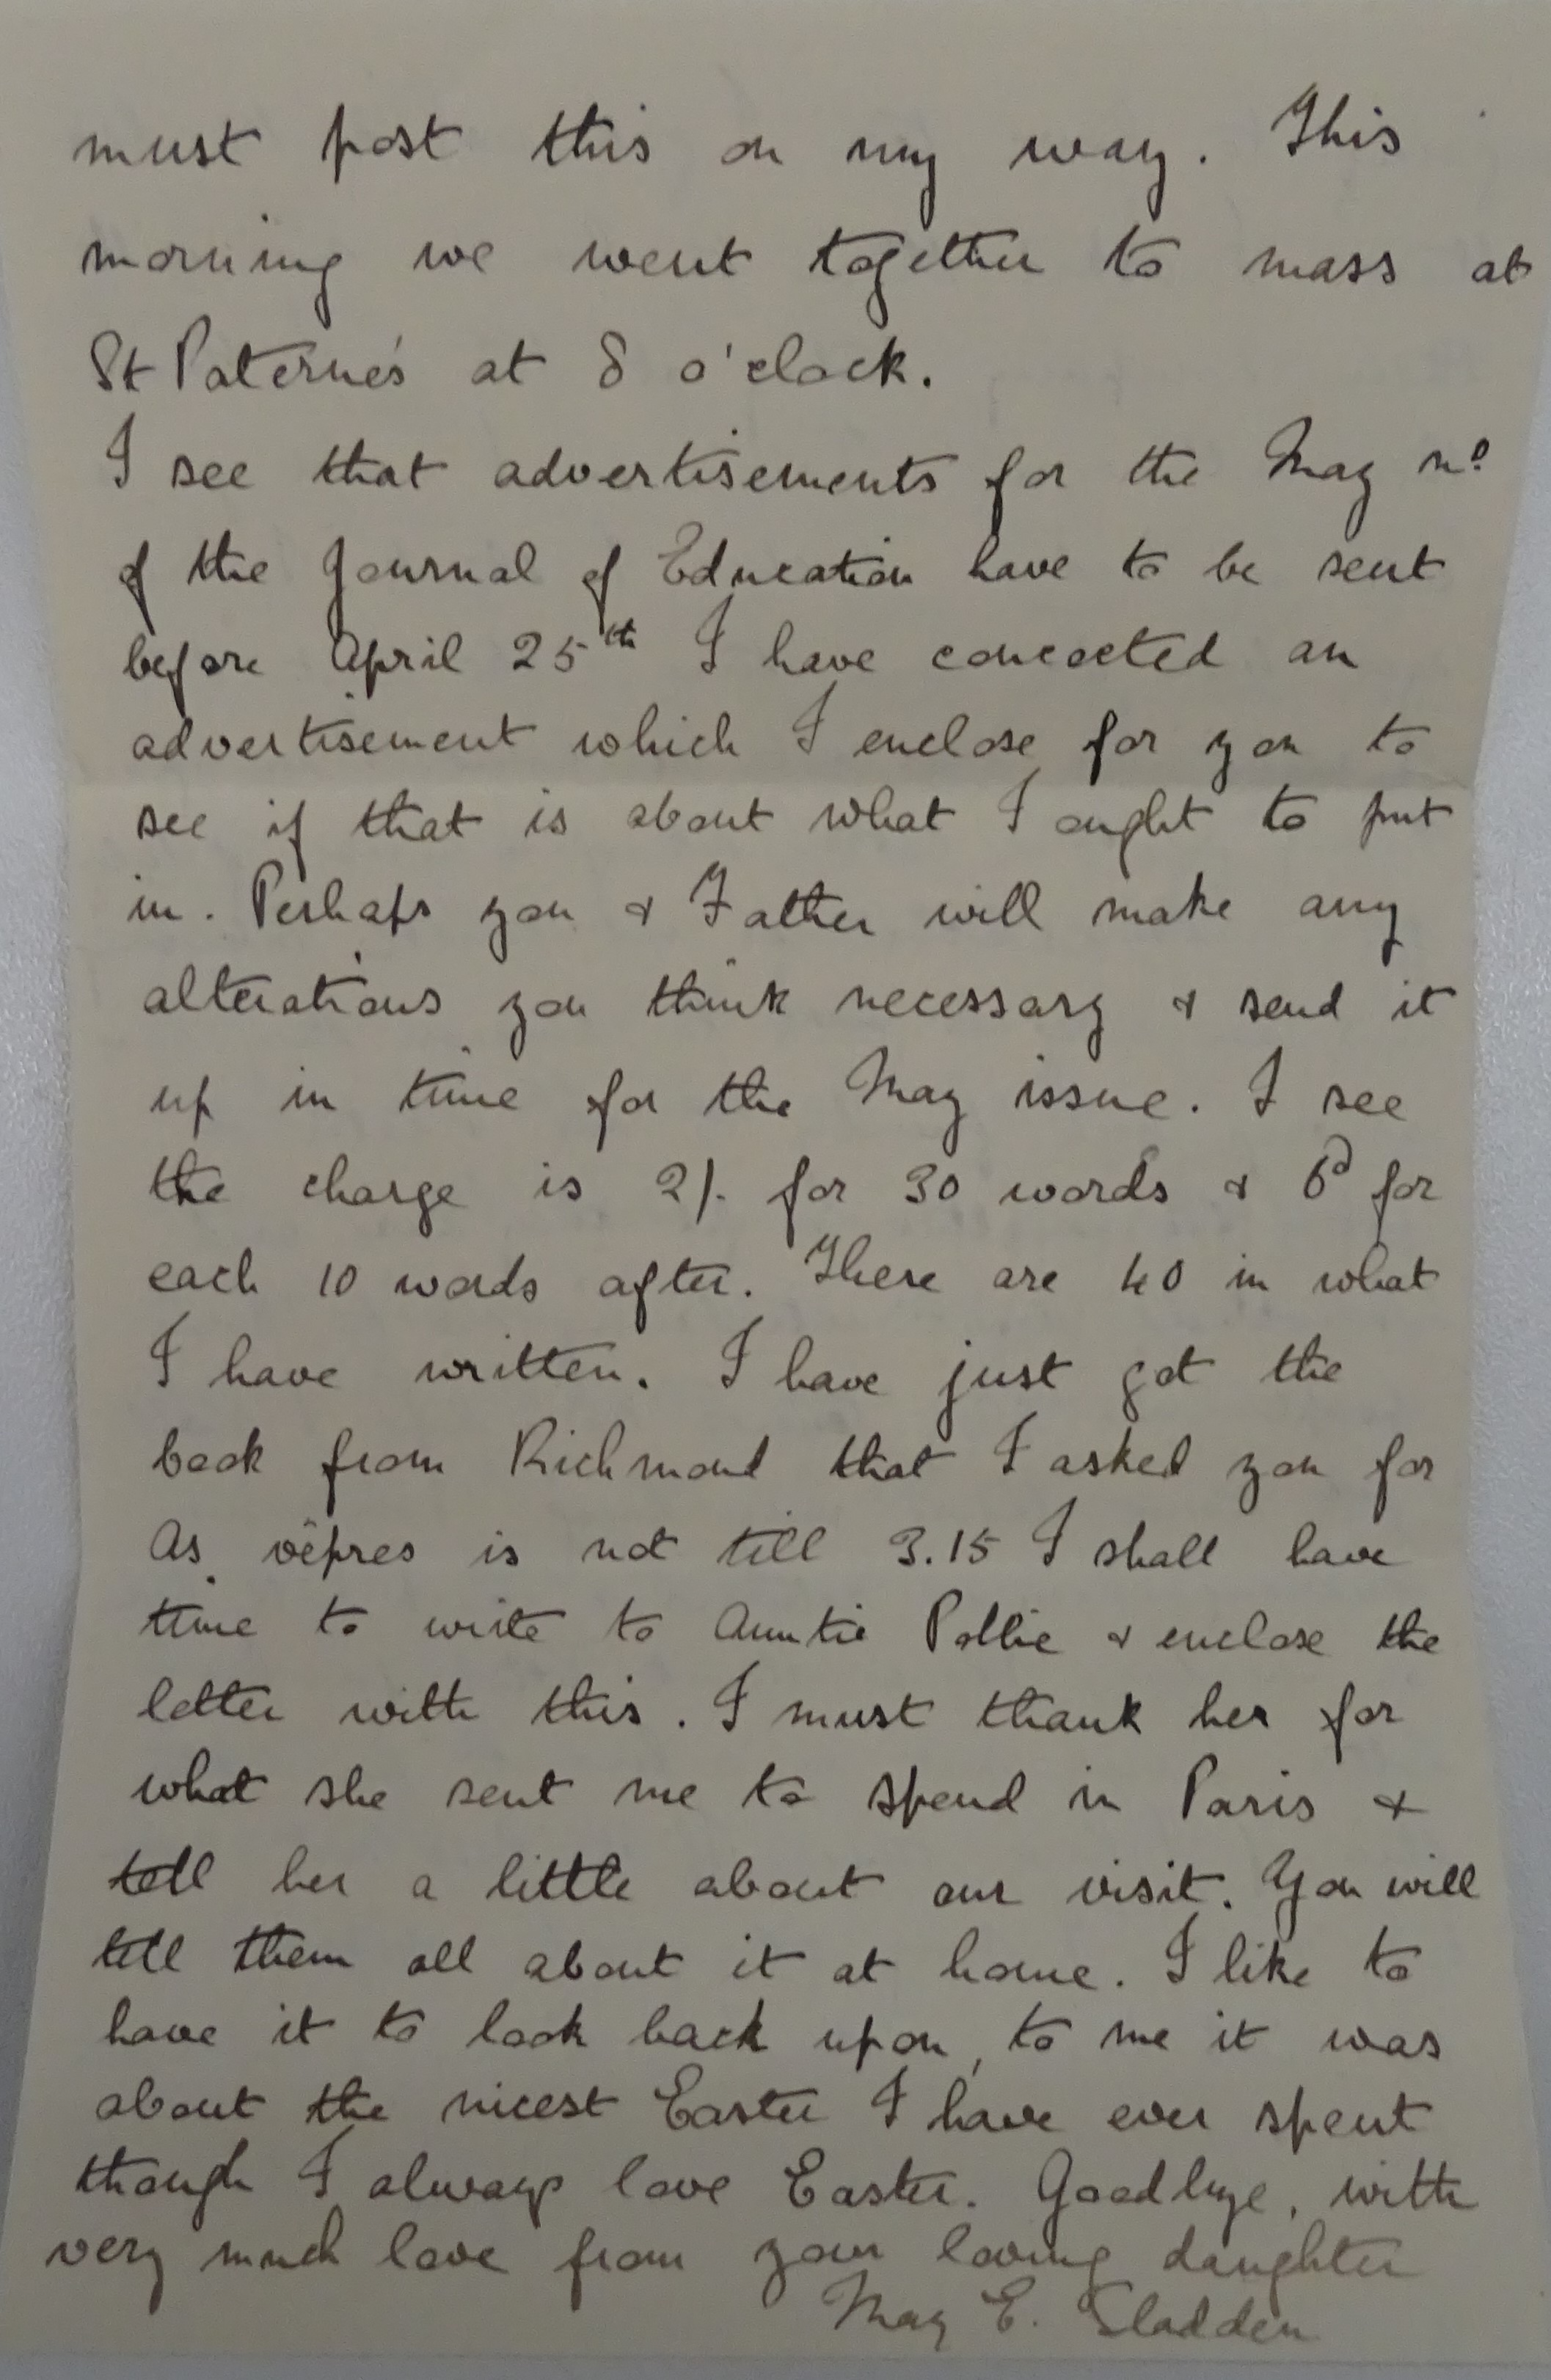 must post this on my way. This
morning we went together to mass at
St Paterne's at 8 o'clock.
I see that advertisements for the May nº
of the Journal of Education have to be sent
before April 25th I have concocted an
advertisement which I enclose for you to
see if that is about what I ought to put
in. Perhaps you & Father will make any
alterations you think necessary & send it
up in time for the May issue. I see
the charge is 2/- for 30 words & 6d for
each 10 words after. There are 40 in what
I have written. I have just got the
book from Richmond that I asked you for
As vêpres is not till 3.15 I shall have
time to write to Auntie Pollie & enclose the
letter with this. I must thank her for
what she sent me to spend in Paris &
tell her a little about our visit. You will
tell them all about it at home. I like to
have it to look back upon, to me it was
about the nicest Easter I have ever spent
though I always love Easter. Goodbye, with
very much love from your loving daughter
May E. Sladden